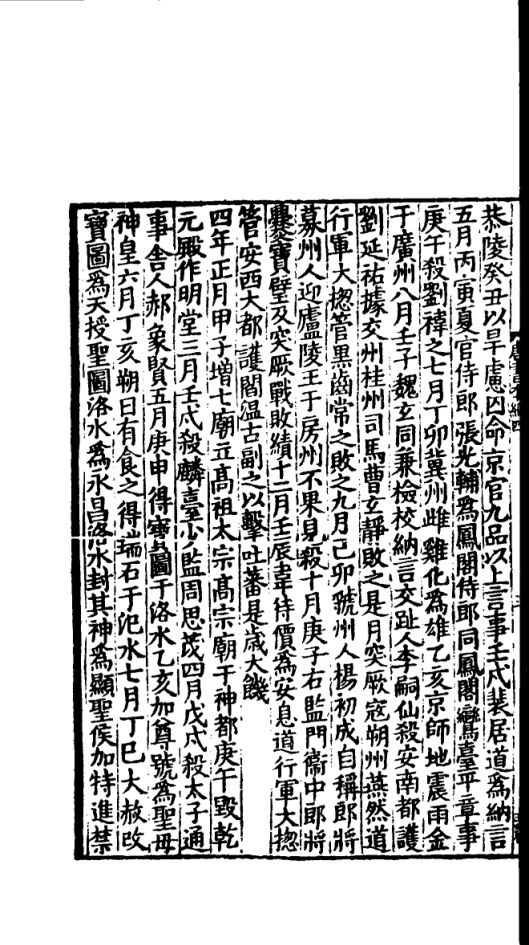 恭陵癸丑以旱慮囚命京官九品以上言事壬戌裴居道爲納言
五月丙寅夏官侍郎張光輔爲鳳閣侍郎同鳳閣鸞臺平章事
庚午殺劉禕之七月丁卯冀州雌雞化爲雄乙亥京師地震雨金
于廣州八月壬子魏玄同兼檢校納言交趾人李嗣仙殺安南都護
劉延祐據交州桂州司馬曹玄靜敗之是月突厥寇朔州燕然道
行軍大揔管黑齒常之敗之九月己卯虢州人楊初成自稱郎將
募州人迎廬陵王于房州不果見殺十月庚子右監門衞中郎將
爨寶璧及突厥戰敗績十二月壬辰韋待價爲安息道行軍大揔
管安西大都護閻溫古副之以擊吐蕃是歲大饑
四年正月甲子增七廟立髙祖太宗髙宗廟于神都庚午毀乾
元殿作明堂三月壬戌殺麟臺少監周思茂四月戊戌殺太子通
事舍人郝象賢五月庚申得寶圖于洛水乙亥加尊號爲聖母
神皇六月丁亥朔日有食之得瑞石于汜水七月丁巳大赦改
寶圖爲天授聖圖洛水爲永昌洛水封其神爲顯聖侯加特進禁